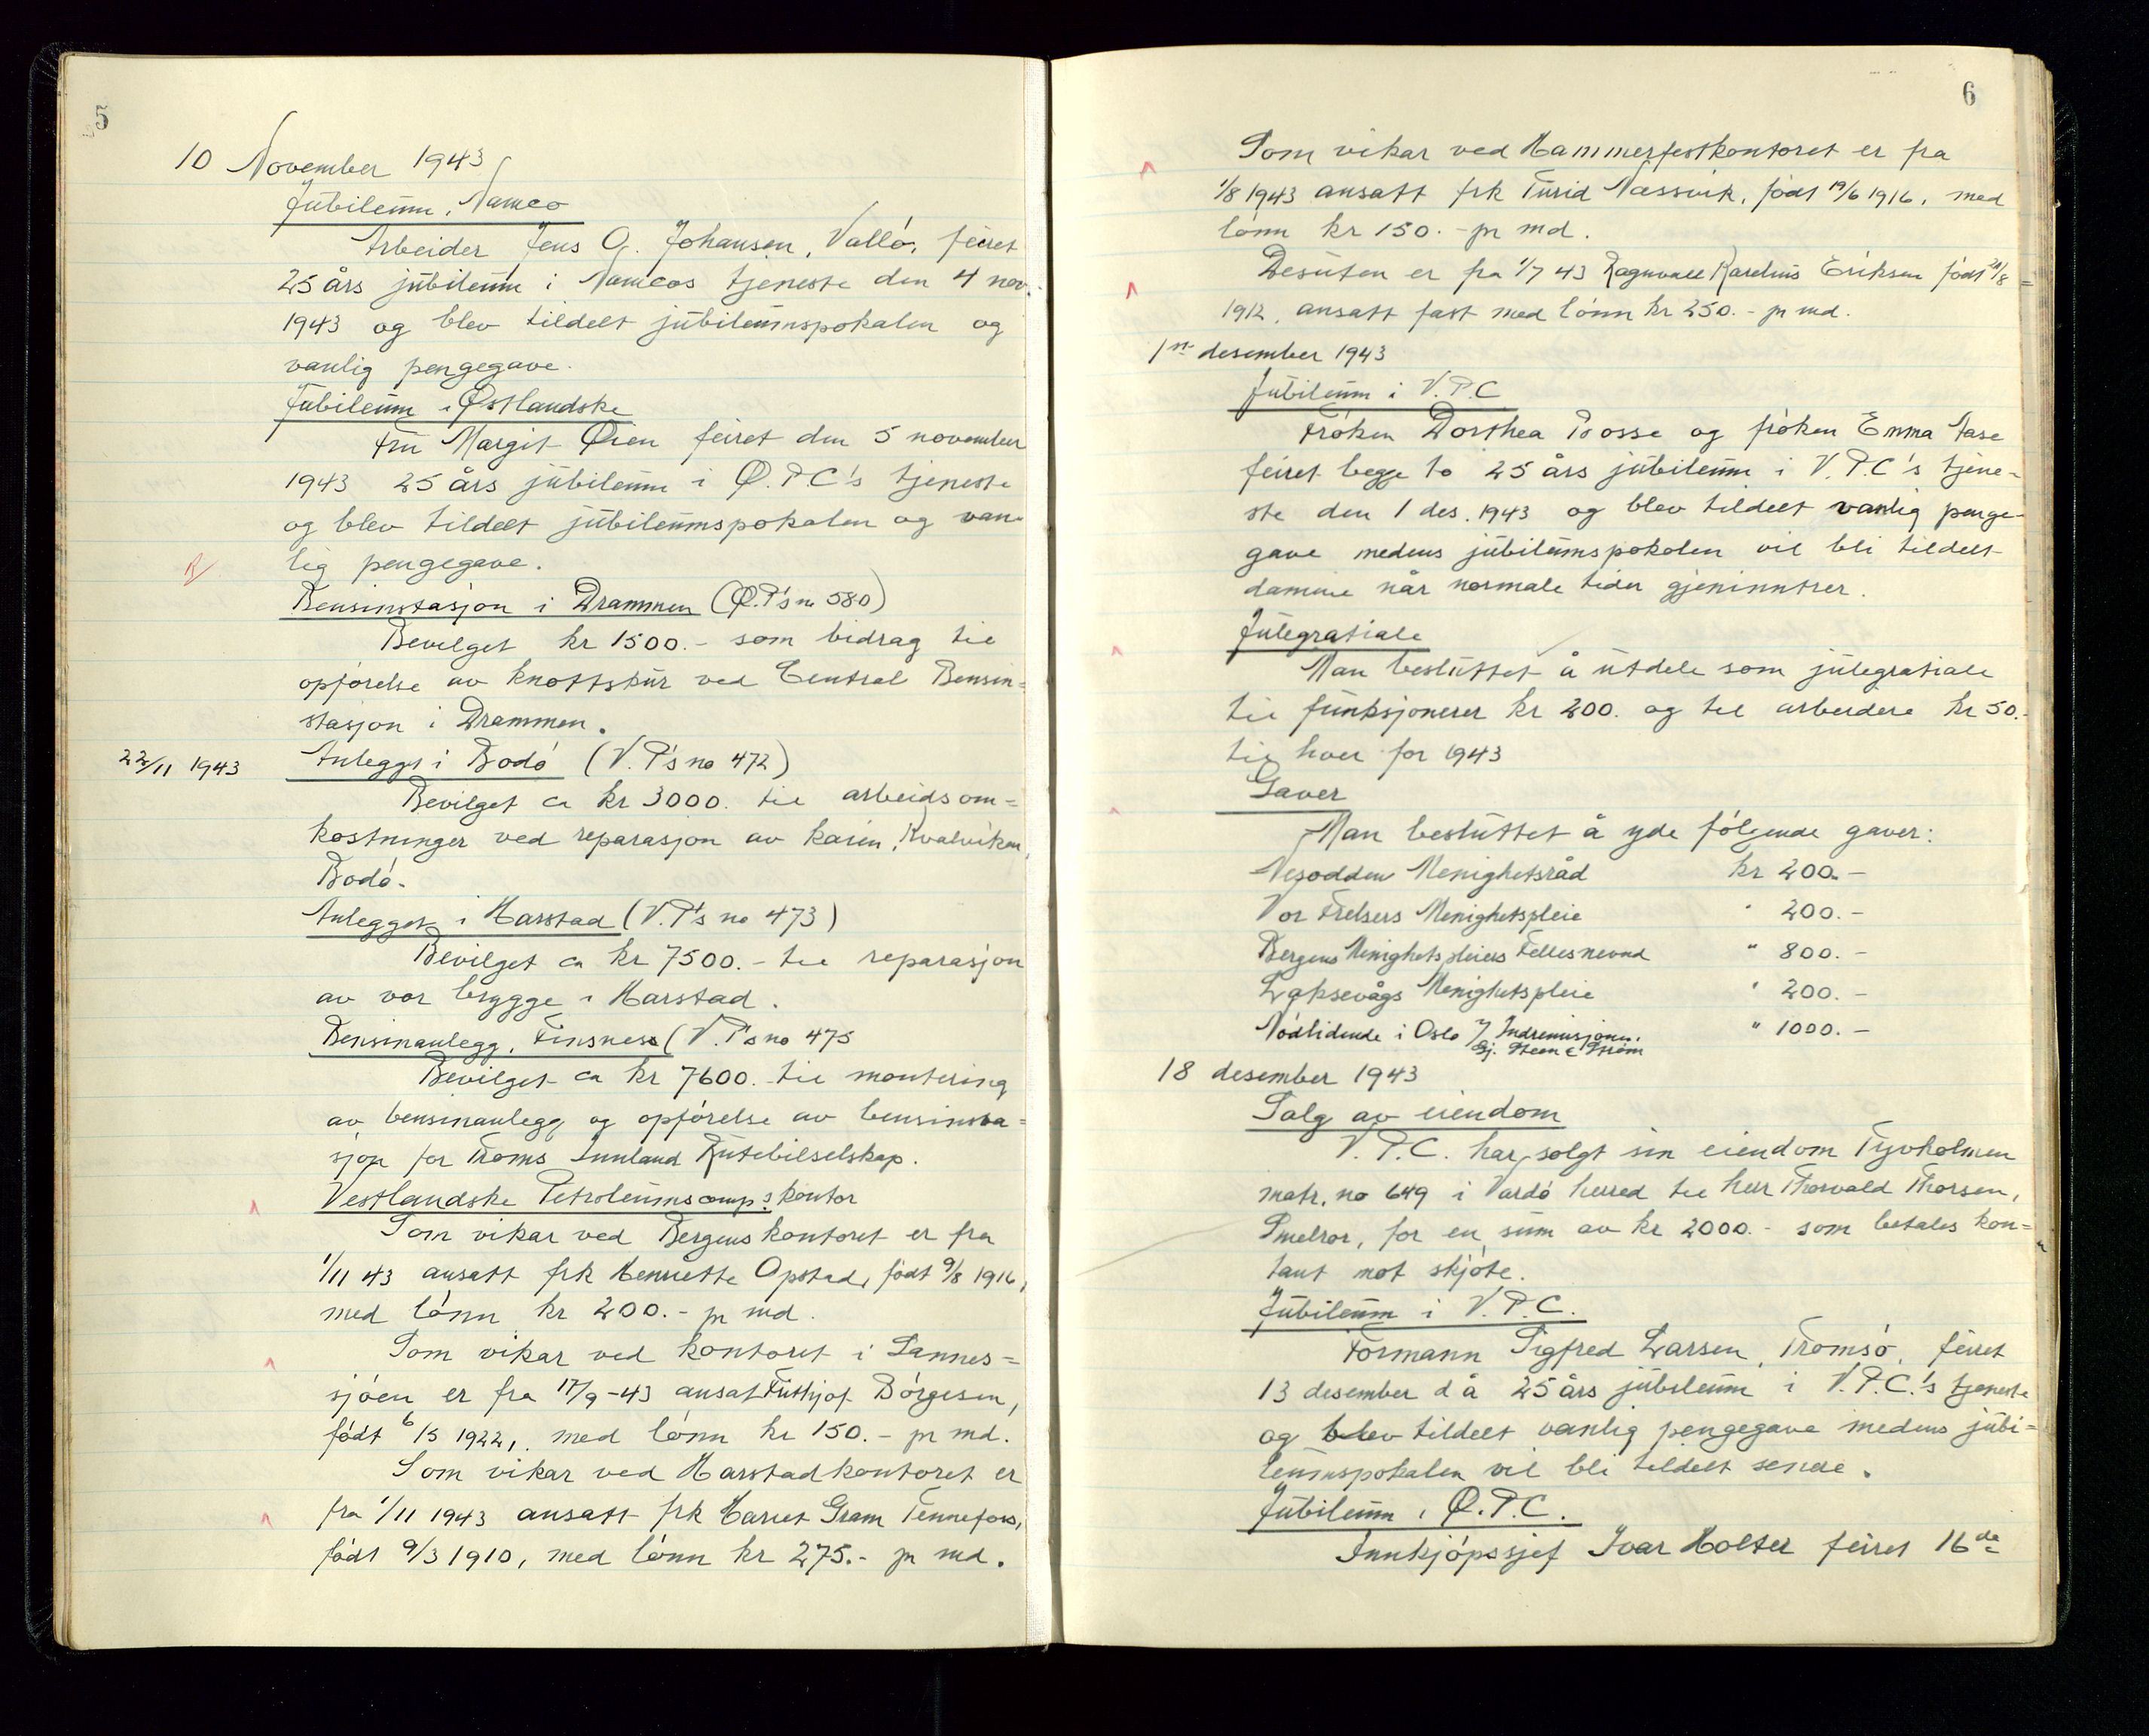 5
10 November 1943
Jubileum, Namco
Arbeider Jens O. Johansen, Vallö, feiret
25 års jubileum i Namcos tjeneste den 4 nov.
1943 og blev tildelt jubileumspokalen og
vanlig pengegave.
Jubileum i Østlandske
Fru Margit Øien feiret den 5 november
1943 25 års jubileum i Ø.P.C's tjeneste
og blev tildelt jubileumspokalen og van-
lig pengegave.
Bensinstasjon i Drammen (Ø.P's no 580)
Bevilget kr 1500.- som bidrag til
opførelse av knottskur ved Central Bensin=
stasjon i Drammen.
22/11 1943 Anlegget i Bodö (V.P's no 472)
Bevilget ca kr 3000. til arbeidsom=
kostninger ved reparasjon av kaien, Kvalviken,
Bodö.
Anlegget i Harstad (V.P's no 473)
Bevilget ca kr 7500.- til reparasjon
av vor brygge i Harstad.
Bensinanlegg, Finsnes (V.P's no 475
Bevilget ca kr 7600.- til montering
av bensinanlegg og opförelse av bensinsta=
sjon for Troms Innland Rutebilselskap.
Vestlandske Petroleumscomp's kontor
Som vikar ved Bergenskontoret er fra
1/11 43 ansatt frk Henriette Opstad, födt 9/8 1916,
med lönn kr 200.- pr md.
Som vikar ved kontoret i Sannes=
sjöen er fra 17/9-43 ansat Frithjof Börgesen,
födt 6/5 1922, med lönn kr 150.- pr md.
Som vikar ved Harstadkontoret er
fra 1/11 1943 ansatt frk Harriet Gram Tennefoss,
födt 9/3 1910, med lönn kr 275.- pr md.
6
Som vikar ved Hammerfestkontoret er fra
1/8 1943 ansatt frk Turid Næssvik, födt 19/6 1916, med
lönn kr 150.- pr md.
Desuten er fra 1/7 43 Ragnvall Karelius Eriksen födt 21/8
1912, ansatt fast med lönn kr 250.- pr md.
1ste desember 1943
Jubileum i V.P.C
Fröken Dorthea Bosse og fröken Emma Aase
feiret begge to 25 års jubileum i V.P.C's tjene-
ste den 1 des. 1943 og blev tildelt vanlig penge-
gave medens jubileumspokalen vil bli tildelt
damene når normale tider gjeninntrer.
Julegratiale
Man besluttet å utdele som julegratiale
til funksjonerer kr 200. og til arbeidere kr 50.-
til hver for 1943
Gaver
Man besluttet å yde fölgende gaver:
Nesodden Menighetsråd kr 200.-
Vor Frelsers Menighetspleie " 200.-
Bergens Menighetspleiers Fellesnevnd " 800.-
Laksevågs Menighetspleie " 200.-
Nödlidende i Oslo v/ Indremisjonen, " 1000.-
gj. Steen & Ström
18 desember 1943
Salg av eiendom
V.P.C. har solgt sin eiendom Tyvholmen
matr. no 649 i Vardö herred til herr Thorvald Thorsen,
Smelror, for en sum av kr 2000.- som betales kon=
tant mot skjöte.
Jubileum i V.P.C.
Formann Sigfred Larsen, Tromsö, feiret
13 desember d å 25 års jubileum i V.P.C.'s tjeneste
og blev tildelt vanlig pengegave medens jubi=
leumspokalen vil bli tildelt senere.
Jubileum i Ø.P.C.
Innkjöpssjef Ivar Holter feiret 16de